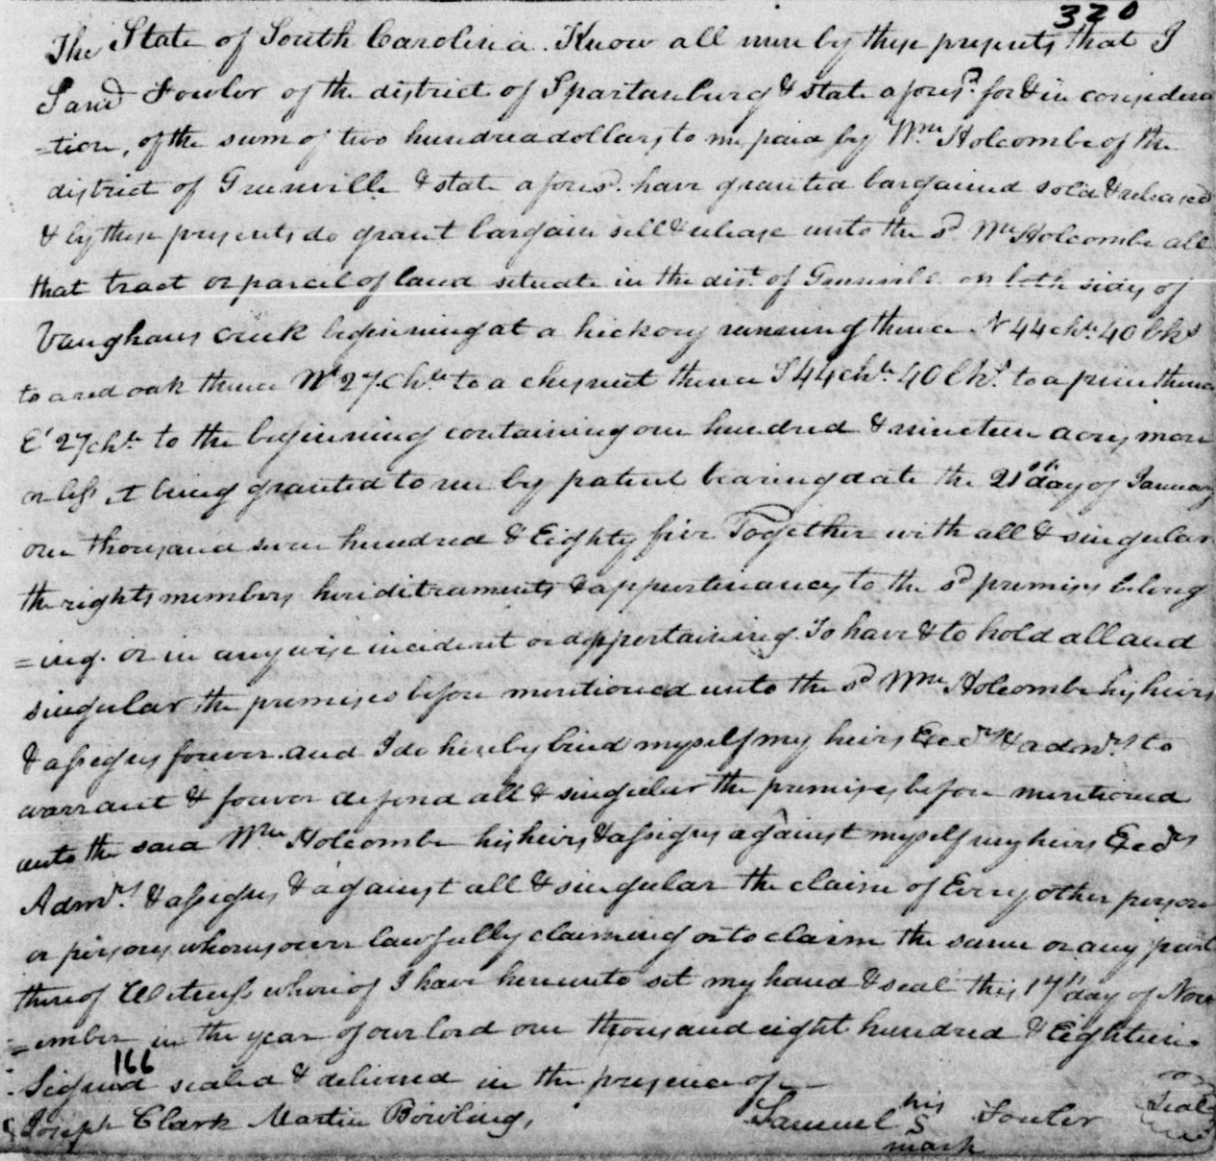 320
The State of South Carolina. Know all men by these presents that I
Saml Fowler of the district of Spartanburg & state aforesd. for & in considera
=tion, of the sum of two hundred dollars to me paid by Wm. Holcombe of the
district of Greenville & state aforesd. have granted bargained sold & released
& by these presents do grant bargain sell & release unto the sd. Wm Holcombe all
that tract or parcel of land situate in the dist. of Greenville on both sides of
Vaughans creek beginning at a hickory running thence N 44 chs. 40 lks
to a red oak thence W 27 chs. to a chesnut thence S 44 chs. 40 lks. to a pine thence
E 27 chs. to the beginning containing one hundred & nineteen acres more
or less it being granted to me by patent bearing date the 21st day of January
one thousand seven hundred & Eighty five Together with all & singular
the rights members heriditraments & appurtenances to the sd premises belong
=ing. or in anywise incident or appertaining. To have & to hold all and
singular the premises before mentioned unto the sd Wm Holcombe his heirs
& assigns forever. and I do hereby bind myself my heirs Execrs & admrs. to
warrant & forever defend all & singular the premises before mentioned
unto the said Wm Holcombe his heirs & assigns against myself my heirs Execrs
Admrs. & assigns & against all & singular the claim of Every other person
or persons whomsoever lawfully claiming or to claim the same or any part
thereof Witness whereof I have hereunto set my hand & seal this 17th day of Nov
=ember in the year of our lord one thousand eight hundred & Eighteen.
166
Signed sealed & delivered in the presence of
Joseph Clark Martin Bowling,
Samuel his S mark Fowler Seal